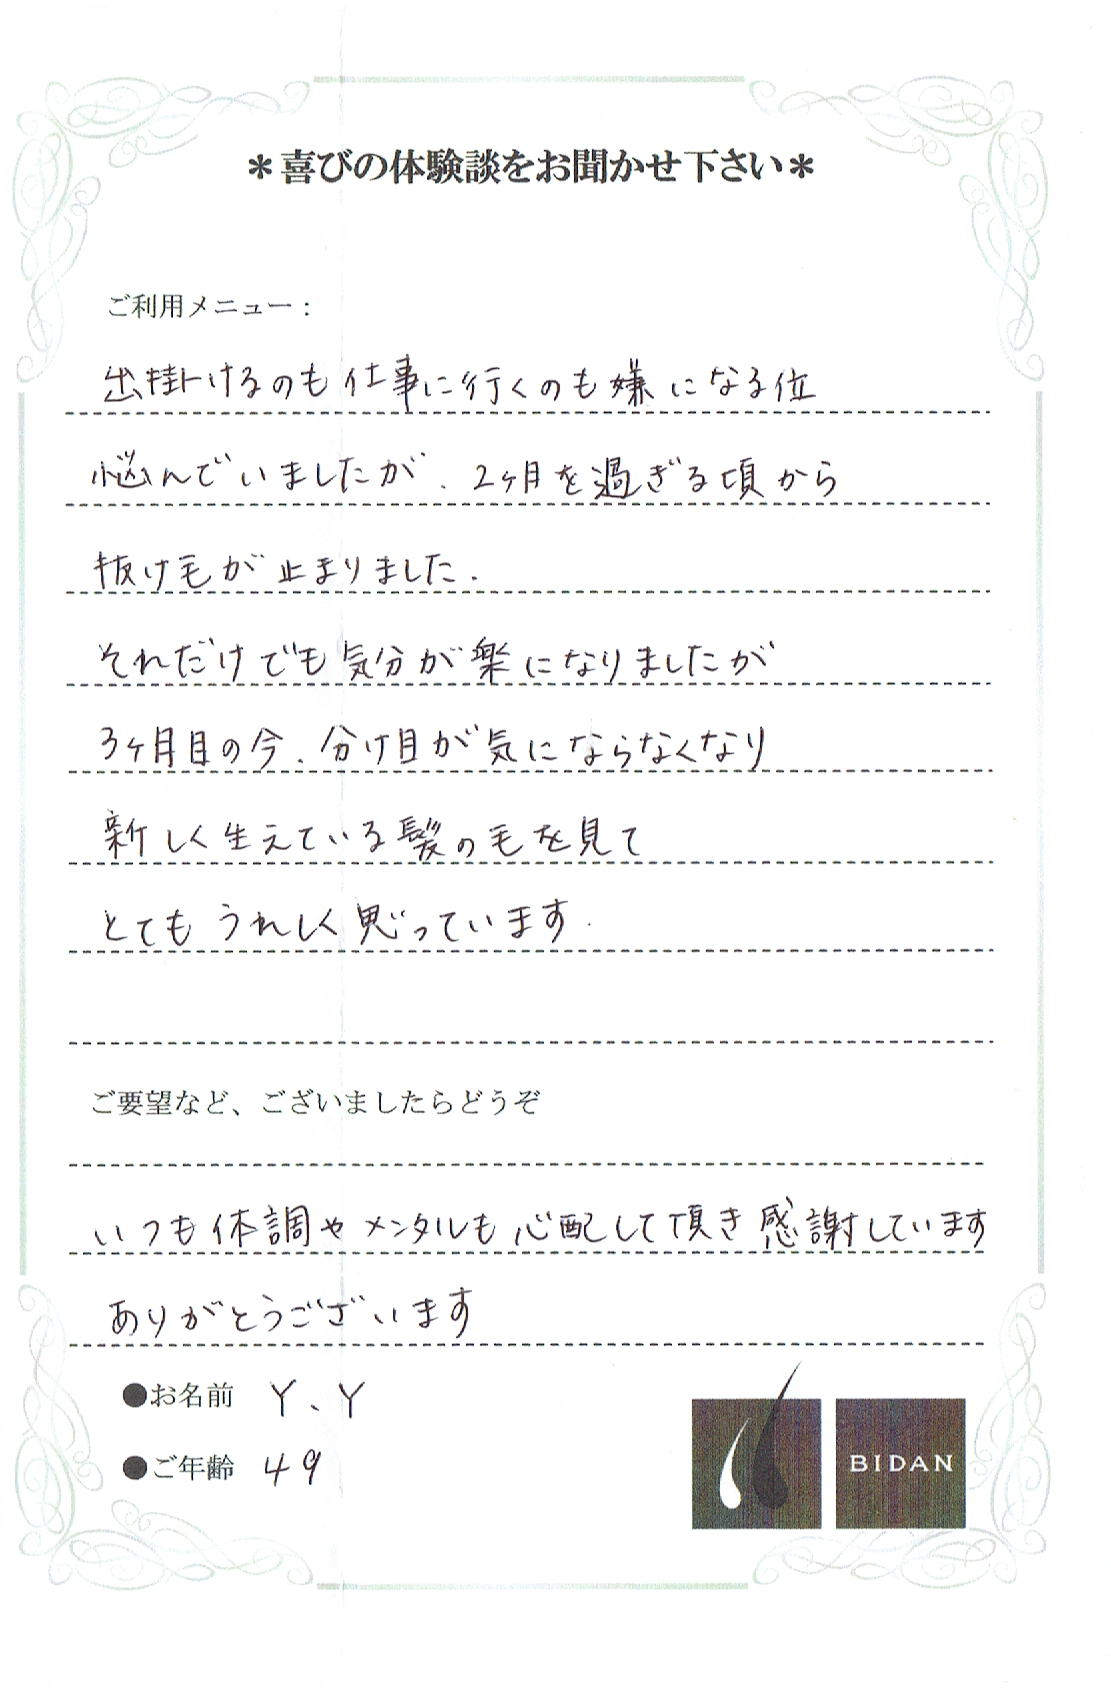 ＊喜びの体験談をお聞かせ下さい＊
ご利用メニュー：
出掛けるのも仕事に行くのも嫌になる位
悩んでいましたが、2ヶ月を過ぎる頃から
抜け毛が止まりました.
それだけでも気分が楽になりましたが
3ヶ月目の今、分け目が気にならなくなり
新しく生えている髪の毛を見て
とてもうれしく思っています.
ご要望など、ございましたらどうぞ
いつも体調やメンタルも心配して頂き感謝しています
ありがとうございます
●お名前 Y、Y
●ご年齢 49
BIDAN